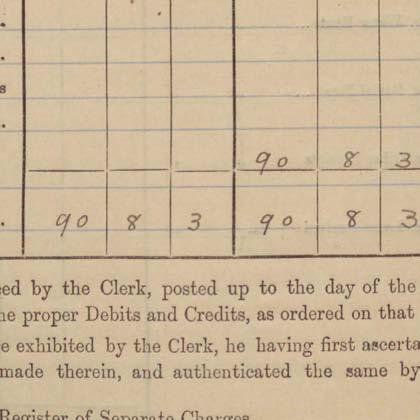 s
90 8 3
90 8 3 90 8 3
ced by the Clerk, posted up to the day of the
he proper Debits and Credits, as ordered on that
e exhibited by the Clerk, he having first ascerta
made therein, and authenticated the same by
Register of Separate Charges